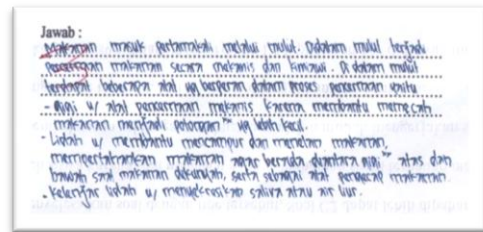 Jawab :
Makanan masuk pertamakali melalui mulut. Didalam mulut terjadi
pencernaan makanan secara mekanis dan kimiawi. Di dalam mulut
terdapat beberapa alat yg berperan dalam proses pencernaan yaitu
- Gigi u/ alat pencernaan mekanis karena membantu memecah
makanan menjadi potongan" yg lebih kecil.
- Lidah u/ membantu mencampur dan menelan makanan,
mempertahankan makanan agar berada diantara gigi" atas dan
bawah saat makanan dikunyah, serta sebagai alat pengecap makanan.
- Kelenjar lidah u/ menyekresikan saliva atau air liur.